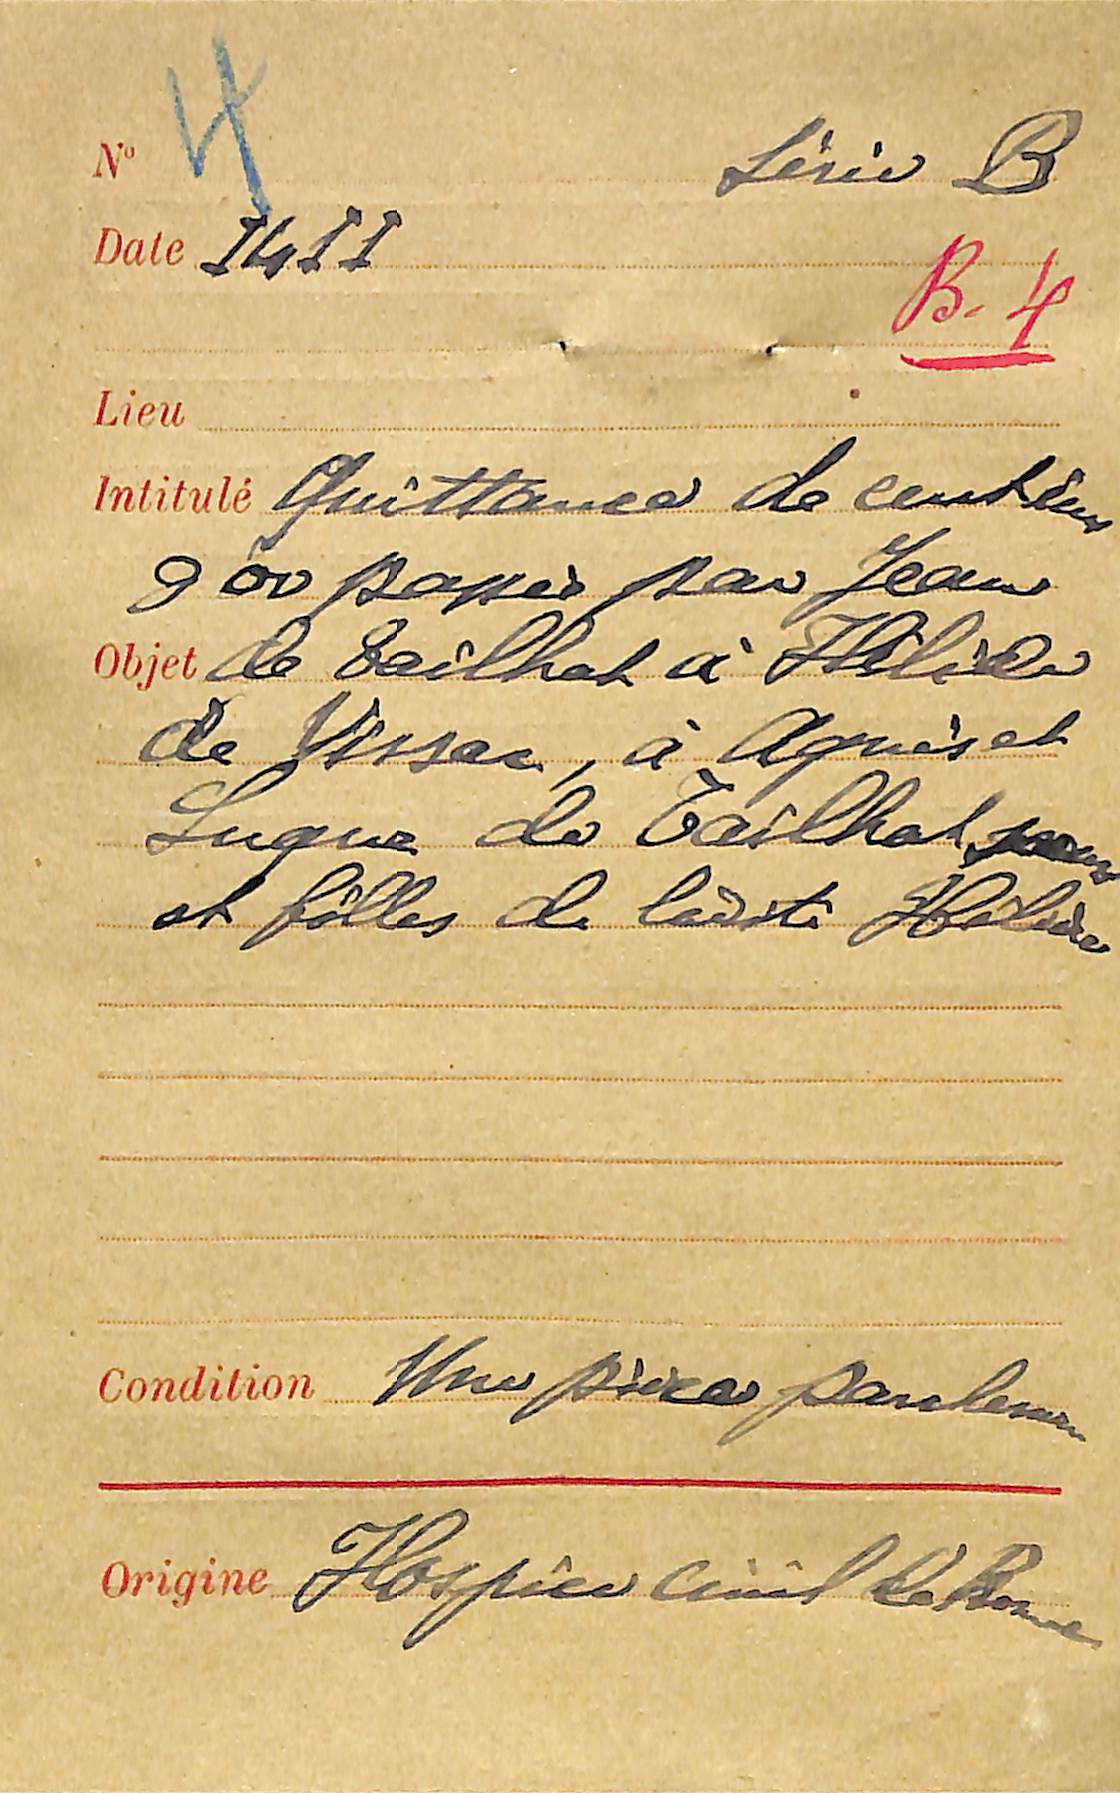 N° 4 Série B
Date 1411
B. 4
Lieu
Intitulé Quittance de cent écus
d'or passée par Jean
Objet de Tailhat à Hélide
de Vissac, à Agnès et
Luque de Tailhat soeurs
et filles de ladite Hélide
Condition Une pièce parchemin
Origine Hospice civil de